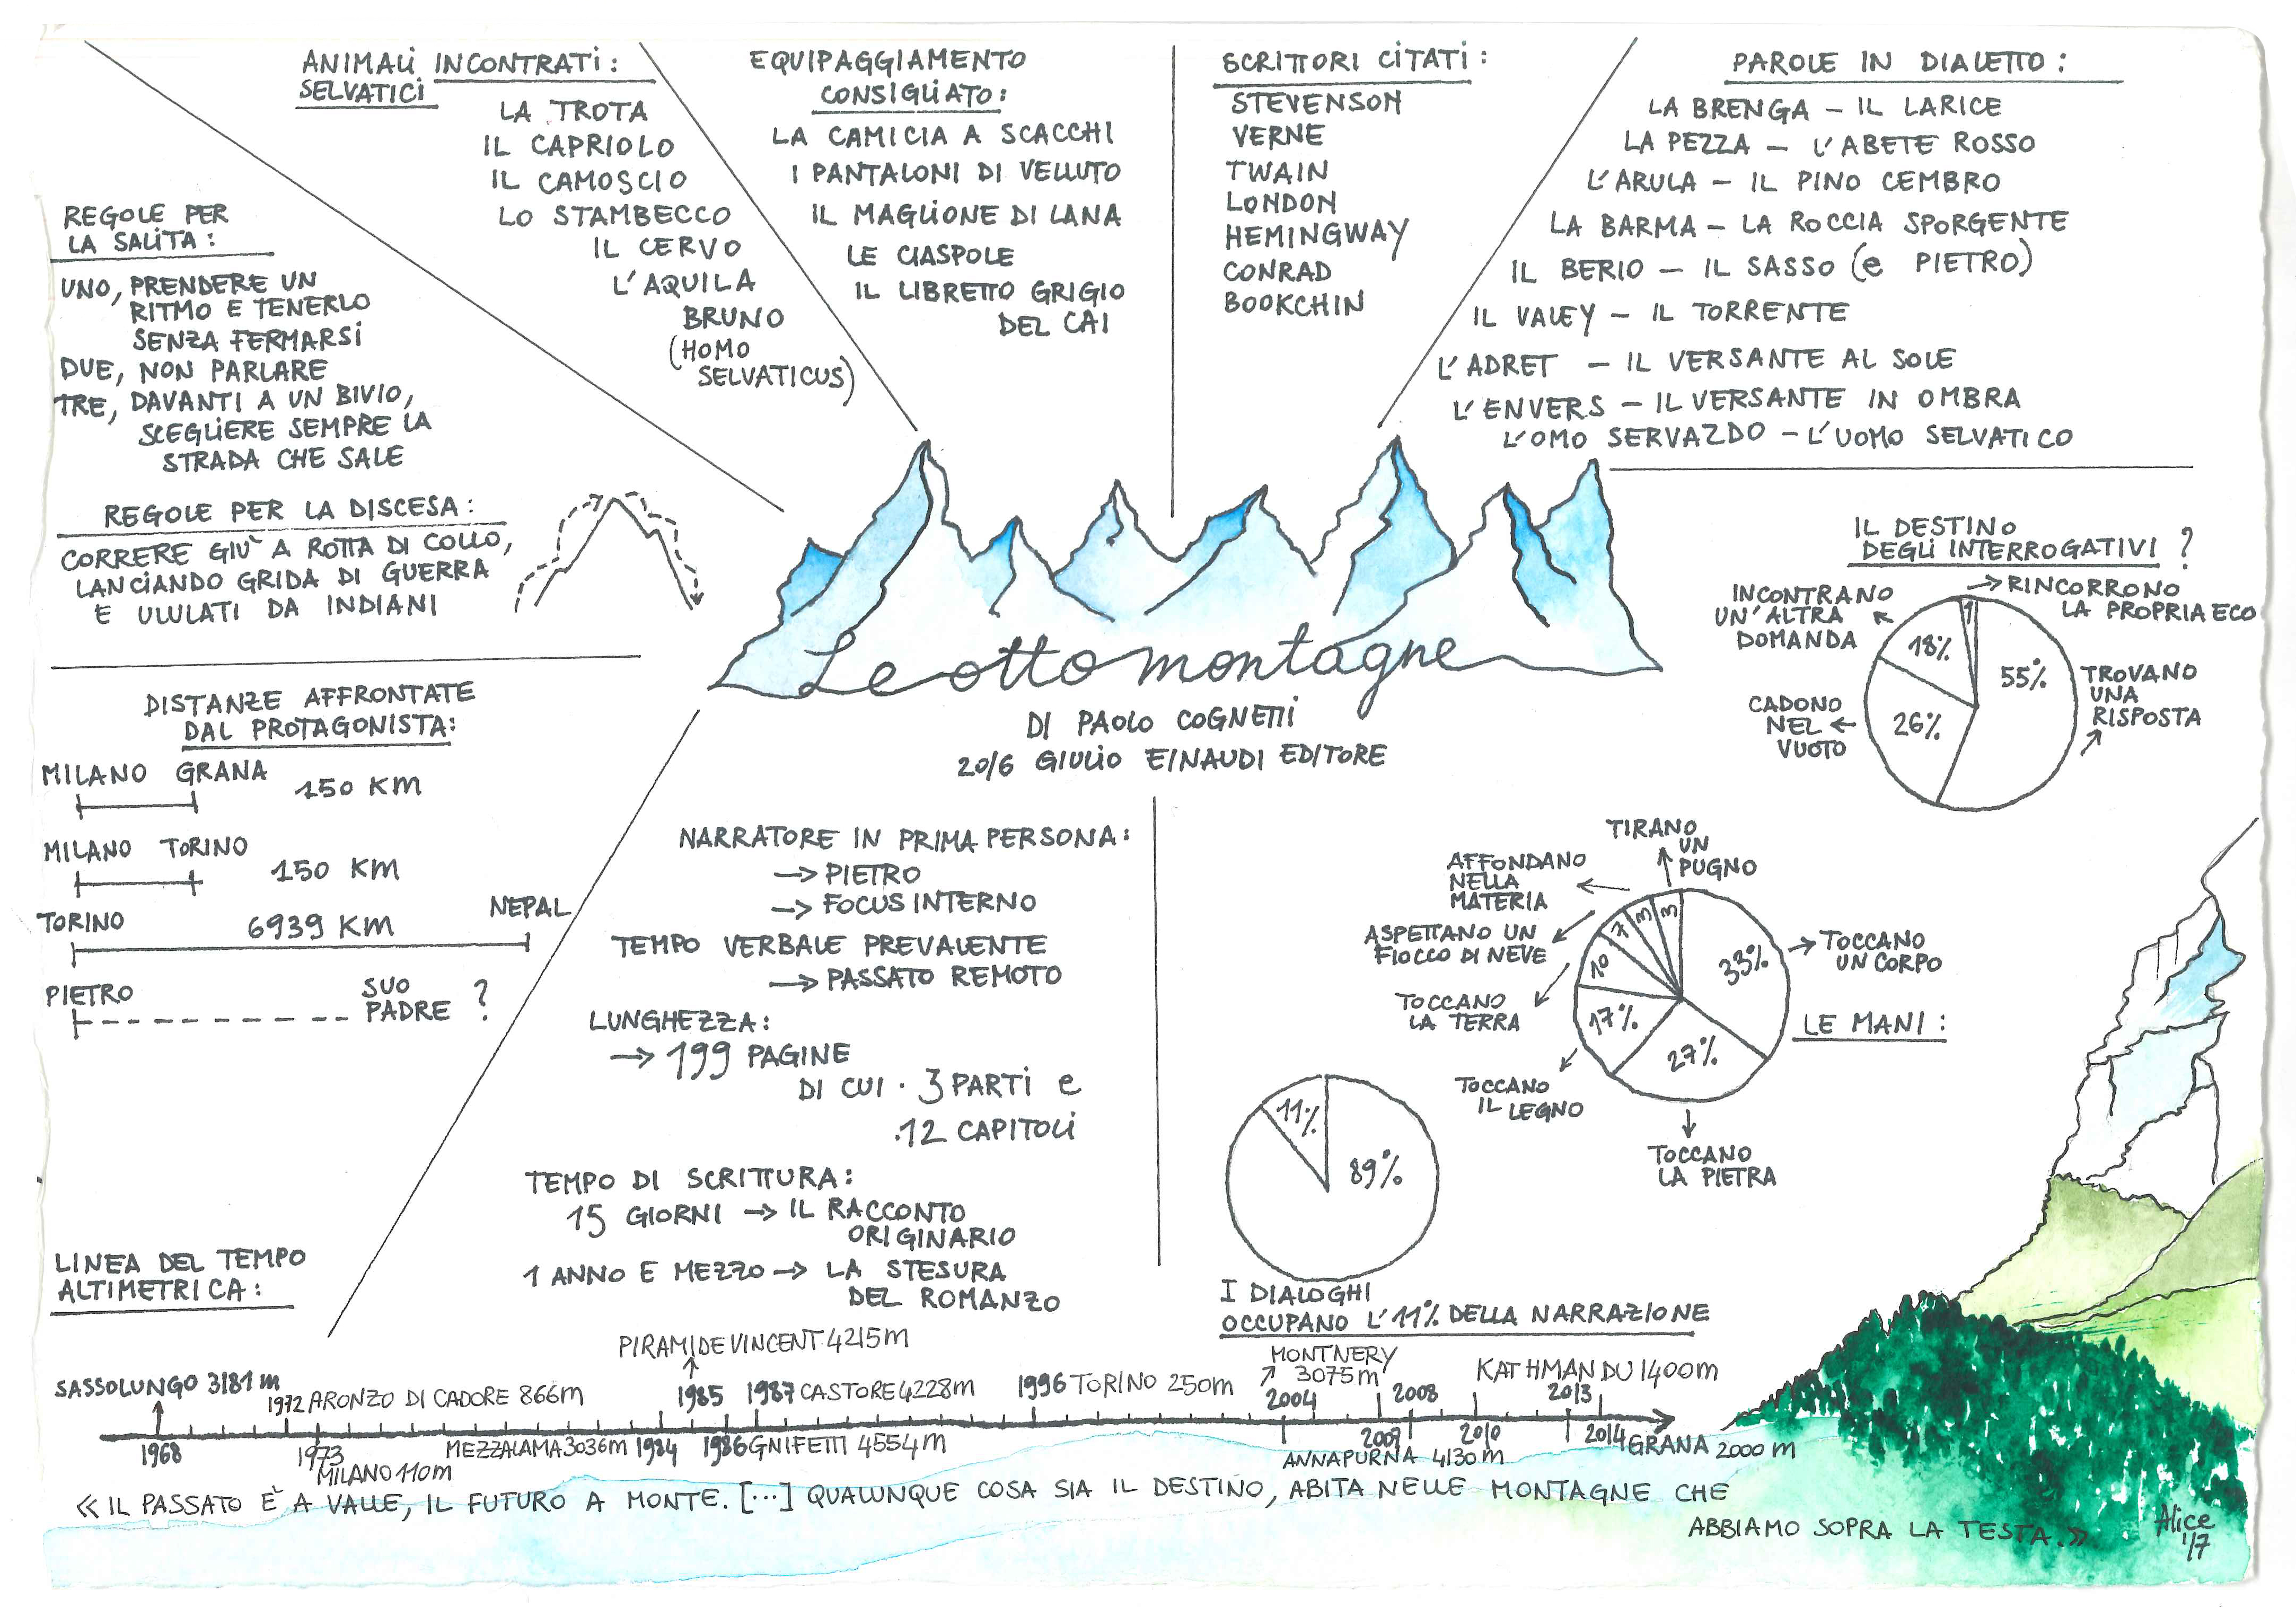 ANIMALI INCONTRATI:
SELVATICI
LA TROTA
IL CAPRIOLO
IL CAMOSCIO
LO STAMBECCO
IL CERVO
L'AQUILA
BRUNO
(HOMO
SELVATICUS)
EQUIPAGGIAMENTO
CONSIGLIATO:
LA CAMICIA A SCACCHI
I PANTALONI DI VELLUTO
IL MAGLIONE DI LANA
LE CIASPOLE
IL LIBRETTO GRIGIO
DEL CAI
SCRITTORI CITATI:
STEVENSON
VERNE
TWAIN
LONDON
HEMINGWAY
CONRAD
BOOKCHIN
PAROLE IN DIALETTO:
LA BRENGA – IL LARICE
LA PEZZA – L'ABETE ROSSO
L'ARULA – IL PINO CEMBRO
LA BARMA – LA ROCCIA SPORGENTE
IL BERIO – IL SASSO (e PIETRO)
IL VALEY – IL TORRENTE
L'ADRET – IL VERSANTE AL SOLE
L'ENVERS – IL VERSANTE IN OMBRA
L'OMO SERVAZDO – L'UOMO SELVATICO
REGOLE PER
LA SALITA:
UNO, PRENDERE UN
RITMO E TENERLO
SENZA FERMARSI
DUE, NON PARLARE
TRE, DAVANTI A UN BIVIO,
SCEGLIERE SEMPRE LA
STRADA CHE SALE
REGOLE PER LA DISCESA:
CORRERE GIÙ A ROTTA DI COLLO,
LANCIANDO GRIDA DI GUERRA
E ULULATI DA INDIANI
Le otto montagne
DI PAOLO COGNETTI
2016 GIULIO EINAUDI EDITORE
IL DESTINO
DEGLI INTERROGATIVI?
RINCORRONO
LA PROPRIA ECO
INCONTRANO
UN'ALTRA
DOMANDA
1
18%
55%
26%
TROVANO
UNA
RISPOSTA
CADONO
NEL
VUOTO
DISTANZE AFFRONTATE
DAL PROTAGONISTA:
MILANO GRANA
150 KM
MILANO TORINO
150 KM
TORINO 6939 KM NEPAL
PIETRO SUO
PADRE ?
NARRATORE IN PRIMA PERSONA:
→ PIETRO
→ FOCUS INTERNO
TEMPO VERBALE PREVALENTE
→ PASSATO REMOTO
LUNGHEZZA:
→ 199 PAGINE
DI CUI · 3 PARTI e
·12 CAPITOLI
TEMPO DI SCRITTURA:
15 GIORNI → IL RACCONTO
ORIGINARIO
1 ANNO E MEZZO → LA STESURA
DEL ROMANZO
TIRANO
UN
PUGNO
AFFONDANO
NELLA
MATERIA
ASPETTANO UN
FIOCCO DI NEVE
TOCCANO
LA TERRA
TOCCANO
IL LEGNO
TOCCANO
LA PIETRA
TOCCANO
UN CORPO
3
3
7
10
17%
27%
33%
LE MANI:
11%
89%
I DIALOGHI
OCCUPANO L'11% DELLA NARRAZIONE
LINEA DEL TEMPO
ALTIMETRICA:
SASSOLUNGO 3181 m
1968
1972 ARONZO DI CADORE 866m
1973
MILANO 110m
MEZZALAMA 3036m 1984
PIRAMIDE VINCENT 4215m
1985
1986 GNIFETTI 4554m
1987 CASTORE 4228m
1996 TORINO 250m
MONTNERY
3075m
2004
2008
ANNAPURNA 4130m
2009
2010
KATHMANDU 1400m
2013
2014 GRANA 2000 m
«IL PASSATO È A VALLE, IL FUTURO A MONTE. [...] QUALUNQUE COSA SIA IL DESTINO, ABITA NELLE MONTAGNE CHE
ABBIAMO SOPRA LA TESTA.»
Alice
'17